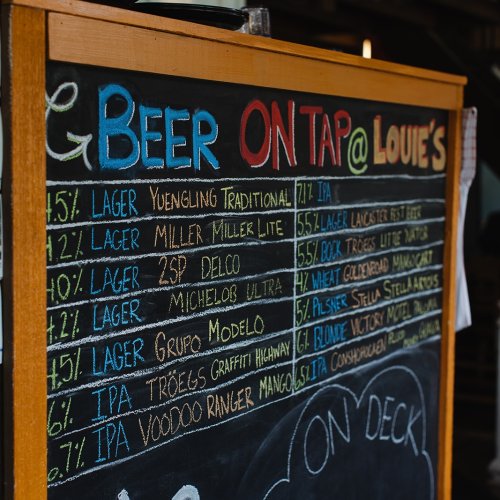 BEER ON TAP @ LOUIE'S
4.5% LAGER YUENGLING TRADITIONAL
4.2% LAGER MILLER MILLER LITE
4.0% LAGER 2SP DELCO
4.2% LAGER MICHELOB ULTRA
4.5% LAGER GRUPO MODELO
6% IPA TRÖEGS GRAFFITI HIGHWAY
6.7% IPA VOODOO RANGER MANGO
7.1% IPA
5.5% LAGER LANCASTER FEST BEER
5.5% BOCK TRÖEGS LITTLE NATOR
4% WHEAT GOLDENROAD MANGO CART
5% PILSNER STELLA STELLA ARTOIS
6% BLONDE VICTORY MOTEL
6.5% IPA CONSHOHOCKEN
ON DECK